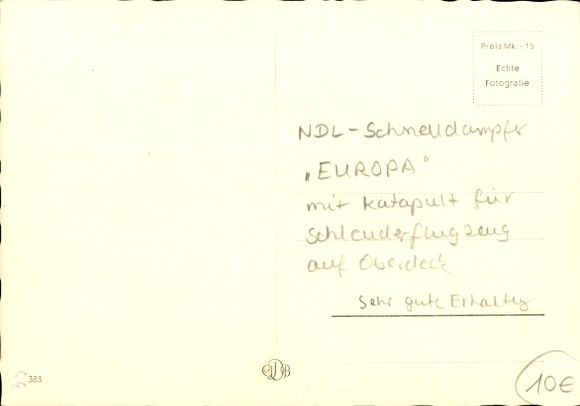 Preis Mk. -.15
Echte
Fotografie
NDL-Schnelldampfer
„EUROPA"
mit Katapult für
Schleuderflugzeug
auf Oberdeck
Sehr gute Erhaltg
383
10€